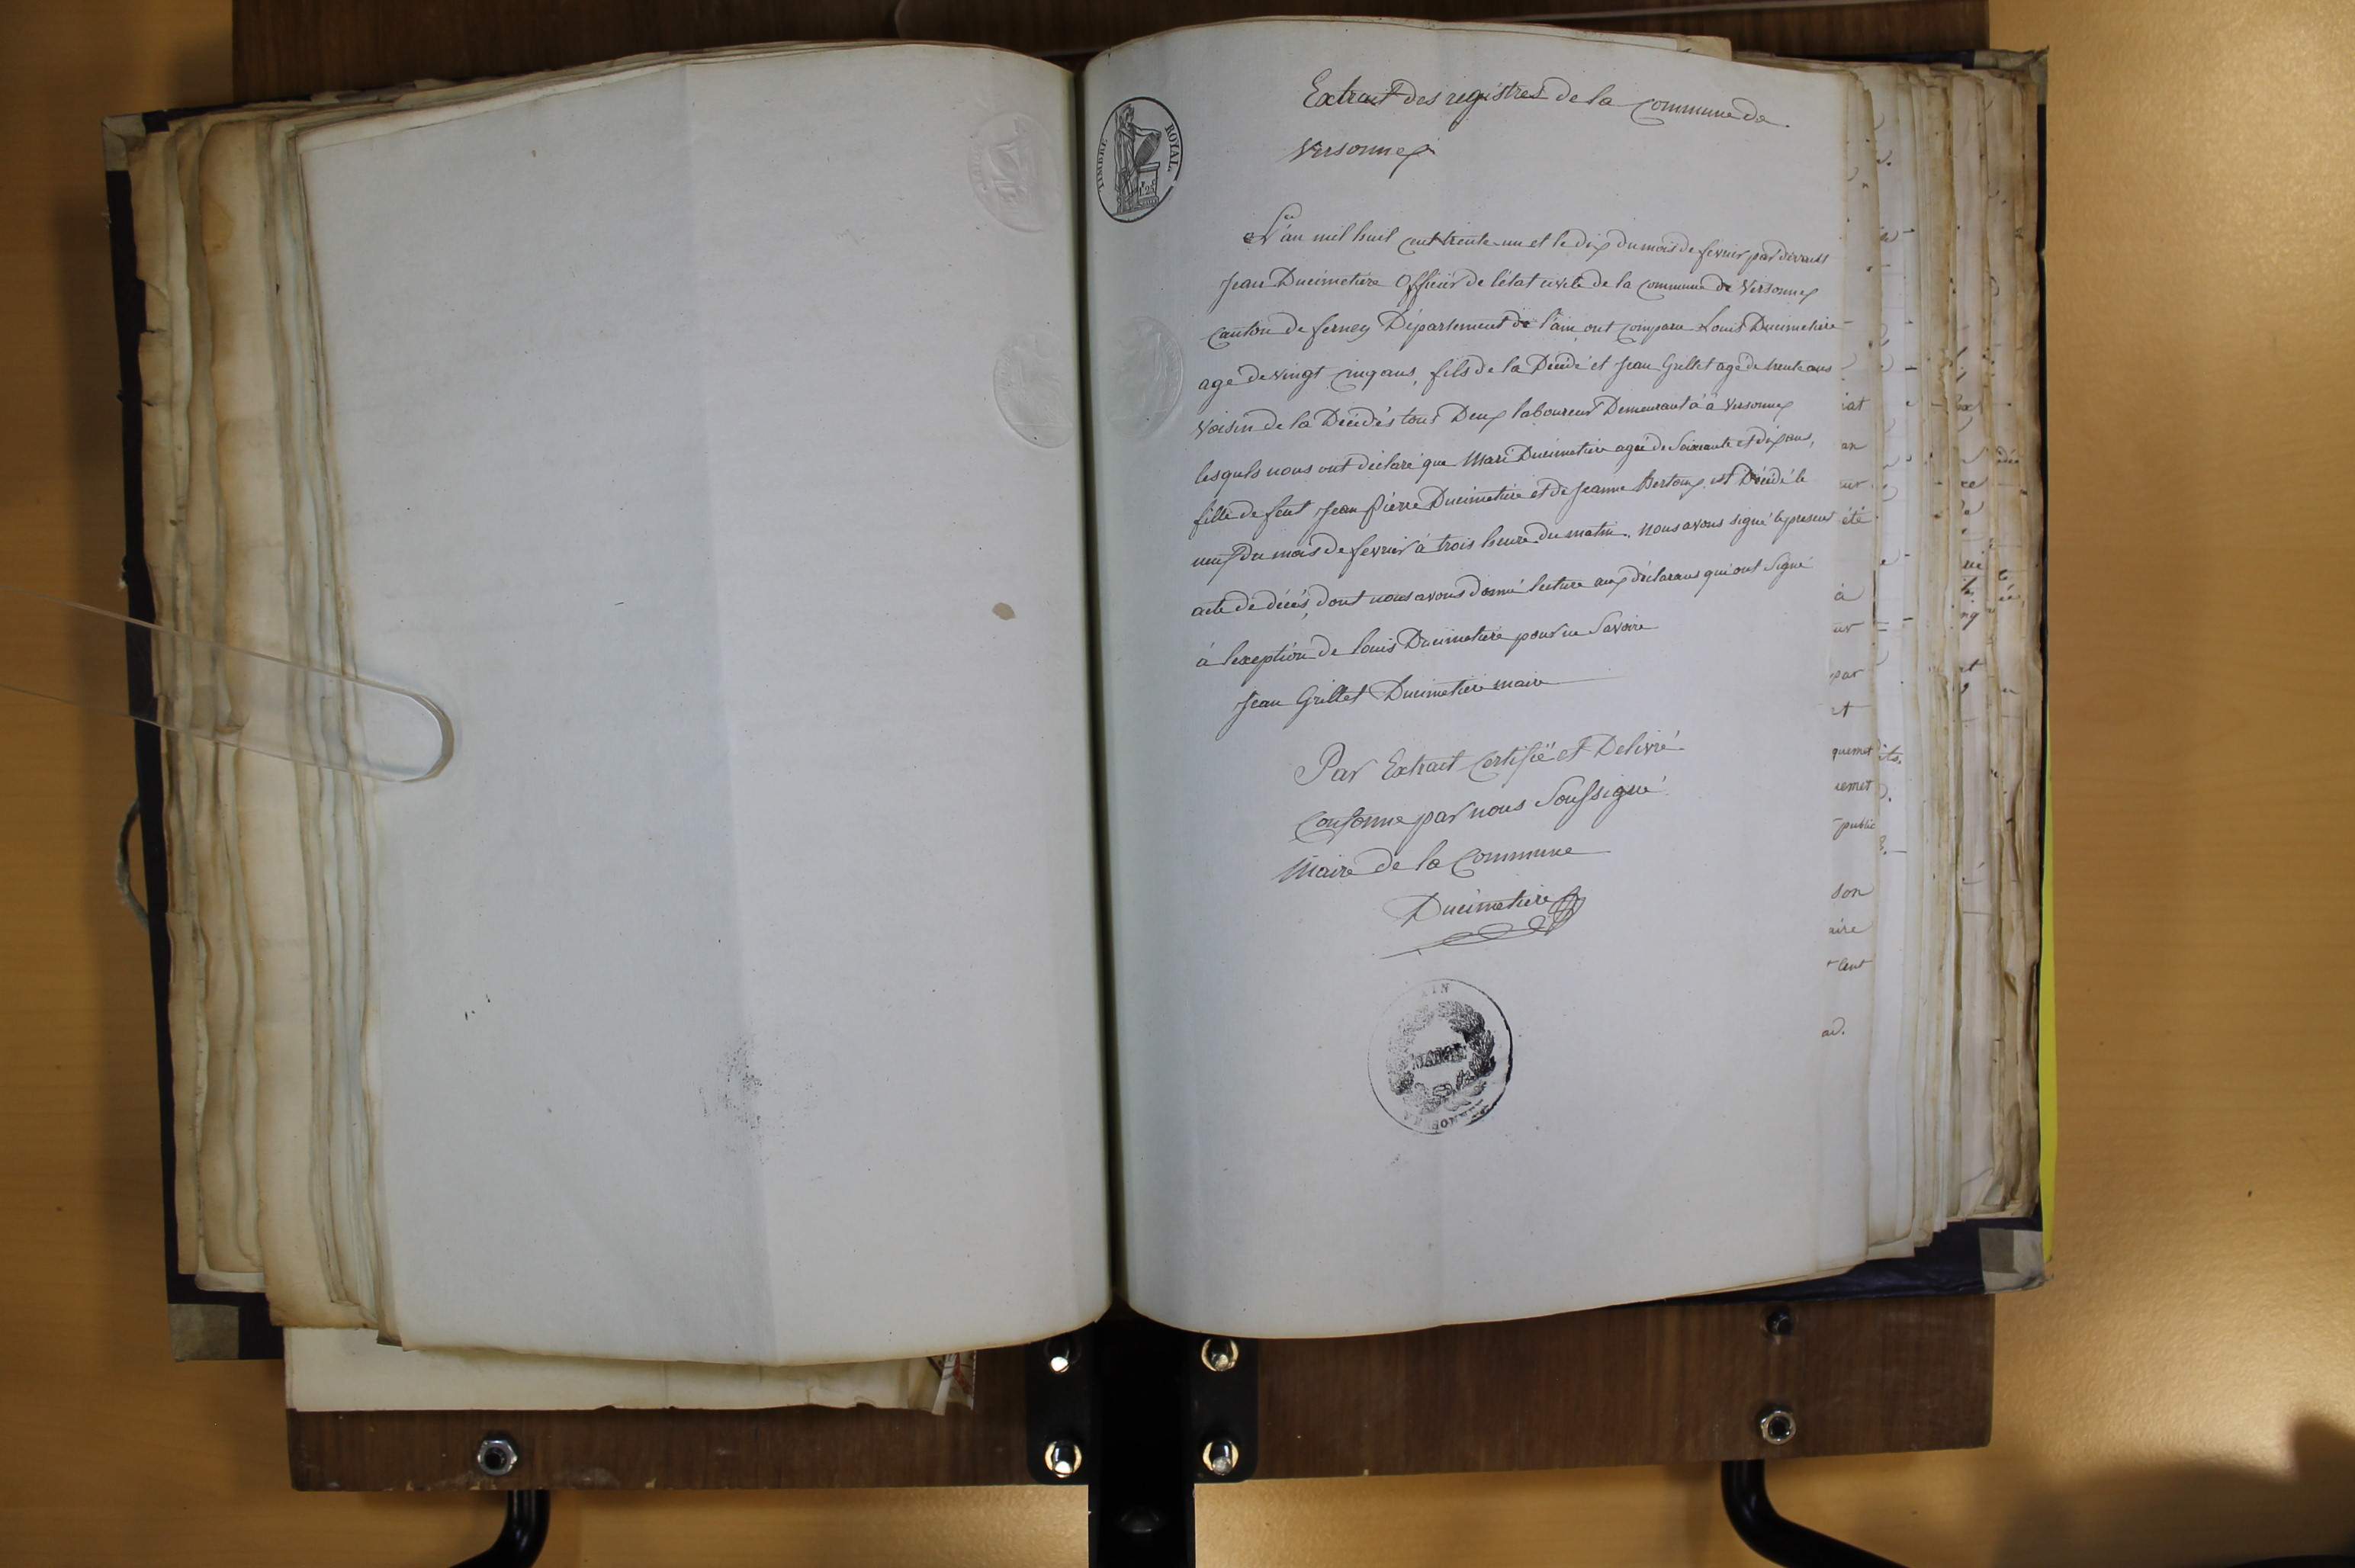 TIMBRE ROYAL
Extrait des registres de la commune de
Versonnex
L'an mil huit cent trente un et le dix du mois de fevrier par devant
Jean Ducimetiere Officier de l'état civile de la commune de Versonnex
Canton de ferney Département de l'ain ont comparu Louis Ducimetiere
age de vingt cinq ans, fils de la Décédé et Jean Grillet agé de trente ans
Voisin de la Décédés tous Deux laboureur Demeurant à à Versonnex
lesquels nous ont déclaré que Mari Ducimetiere agée de Soixante et dix ans,
fille de feut Jean pierre Ducimetiere et de Jeanne est Décédé le
neuf du mois de fevrier à trois heure du matin. nous avons signé le present
acte de décés, dont nous avons donné lecture aux déclarans qui ont Signé
à l'exeption de louis Ducimetiere pour ne Savoire
Jean Grillet Ducimetiere maire
Par Extrait Certifié et Delivré
Conforme par nous Soussigné
Maire de la Commune
Ducimetiere
AIN
MAIRIE
iat
an
sur
été
à
ur
par
et
quemet
public
son
aire